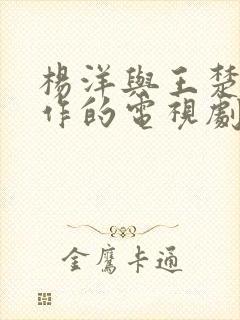 楊洋與王楚
作的電視劇
金鷹卡通